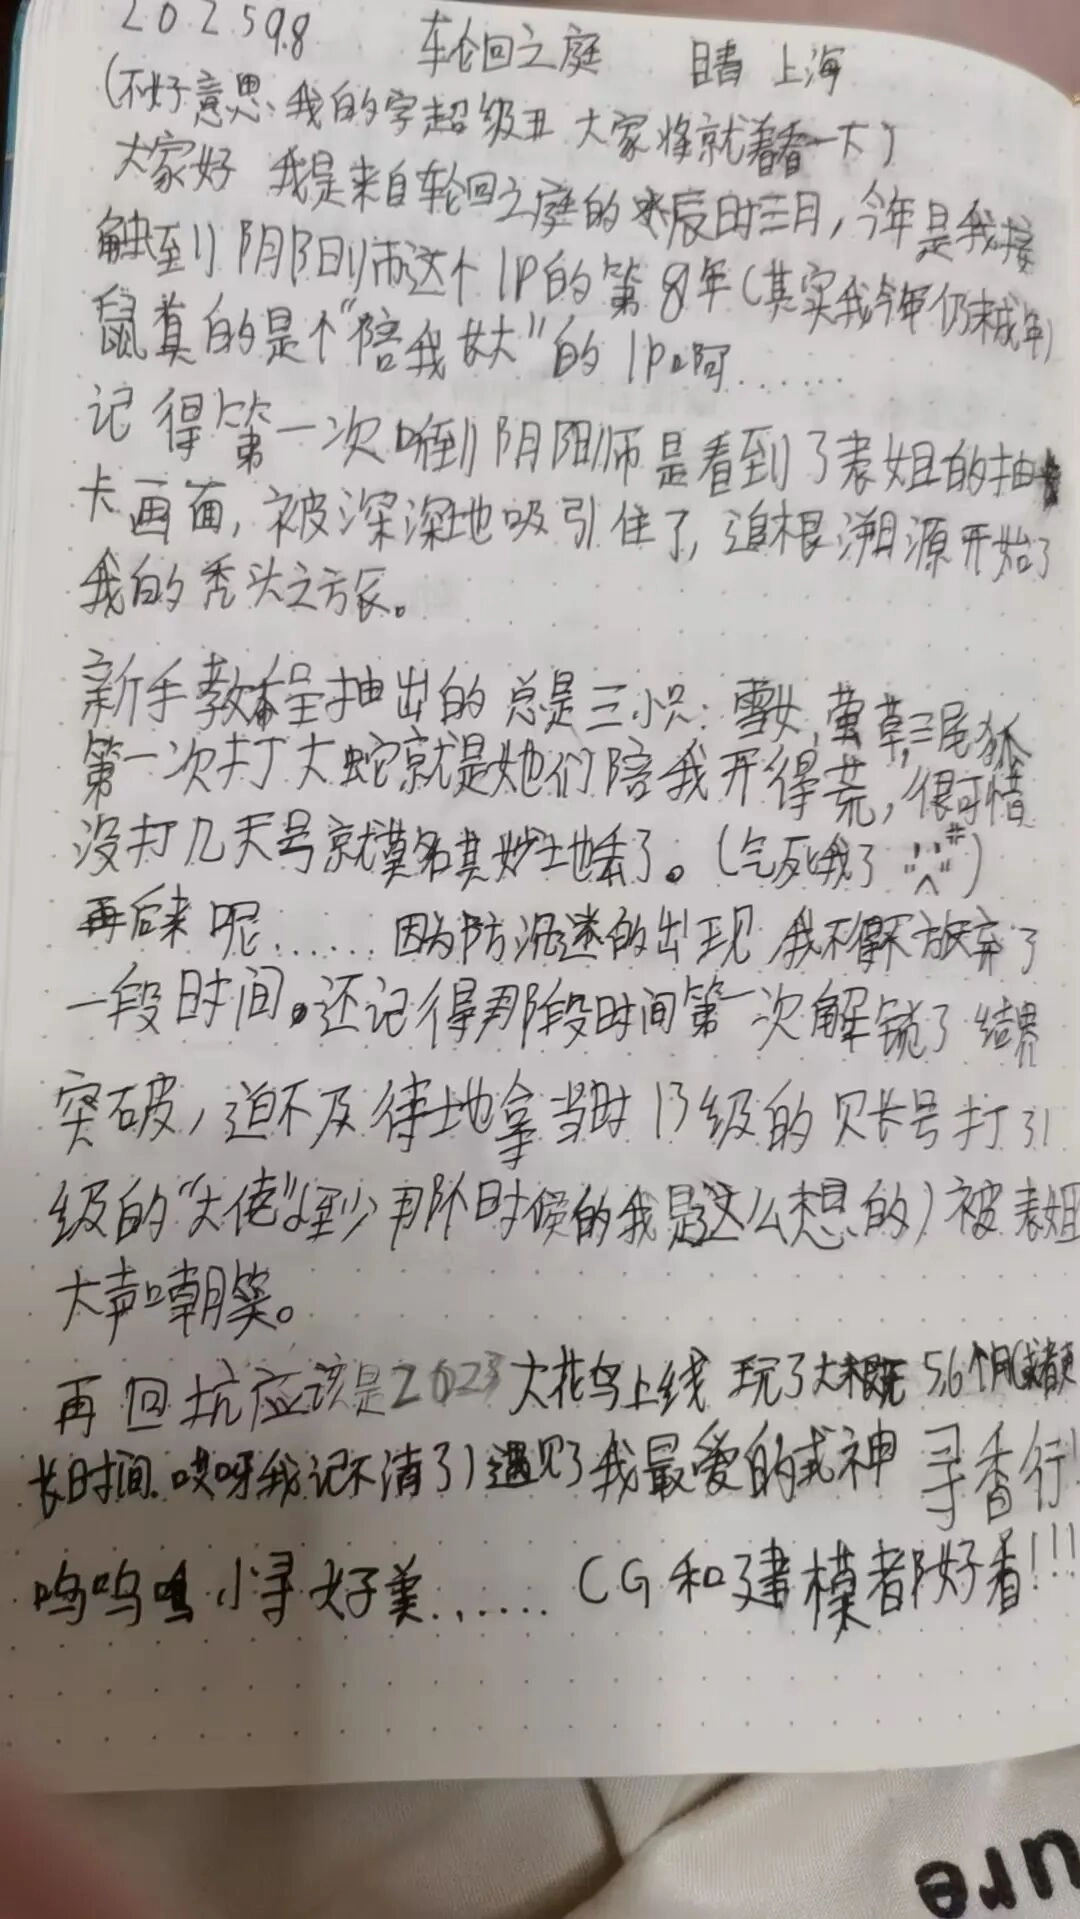 2025 9.8 轮回之庭 晴 上海
(不好意思、我的字超级丑 大家将就着看一下)
大家好 我是来自轮回之庭的 辰时三月，今年是我接
触到阴阳师这个IP的第8年(其实我今年仍未成年)
鼠真的是个“陪我长大”的IP啊……
记得第一次 到阴阳师是看到了表姐的抽
卡画面，被深深地吸引住了，追根溯源开始了
我的秃头之方家。
新手教程抽出的总是三小只：雪女，萤草，三尾狐
第一次打大蛇就是她们陪我开得荒，很可惜
没打几天号就莫名其妙地丢了。(气死我了 )
再后来呢……因为防沉迷的出现 我不得不放弃了
一段时间。还记得那段时间第一次解锁了结界
突破，迫不及待地拿当时13级的 号打31
级的“大佬”(至少那个时候的我是这么想的)被表姐
大声嘲笑。
再回坑应该是2023大花鸟上线 玩了大概 5,6个月(或者更
长时间.哎呀我记不清了)遇见了我最爱的式神 寻香行!
呜呜呜 小寻好美…… CG和建模都好看!!!
ure